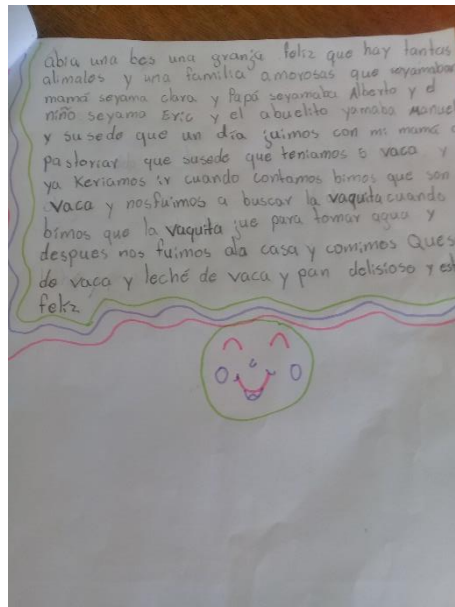 abia una bes una granja feliz que hay tantas
alimales y una familia amorosas que seyamaban
mamá seyama clara y Papá seyamaba Alberto y el
niño seyama Eric y el abuelito yamaba Manuel
y susede que un día juimos con mi mamá a
pastoriar que susede que teniamos 5 vaca y
ya Keriamos ir cuando contamos bimos que son
vaca y nosfuimos a buscar la vaquita cuando
bimos que la vaquita jue para tomar agua y
despues nos fuimos ala casa y comimos Ques
de vaca y leché de vaca y pan delisioso y est
feliz